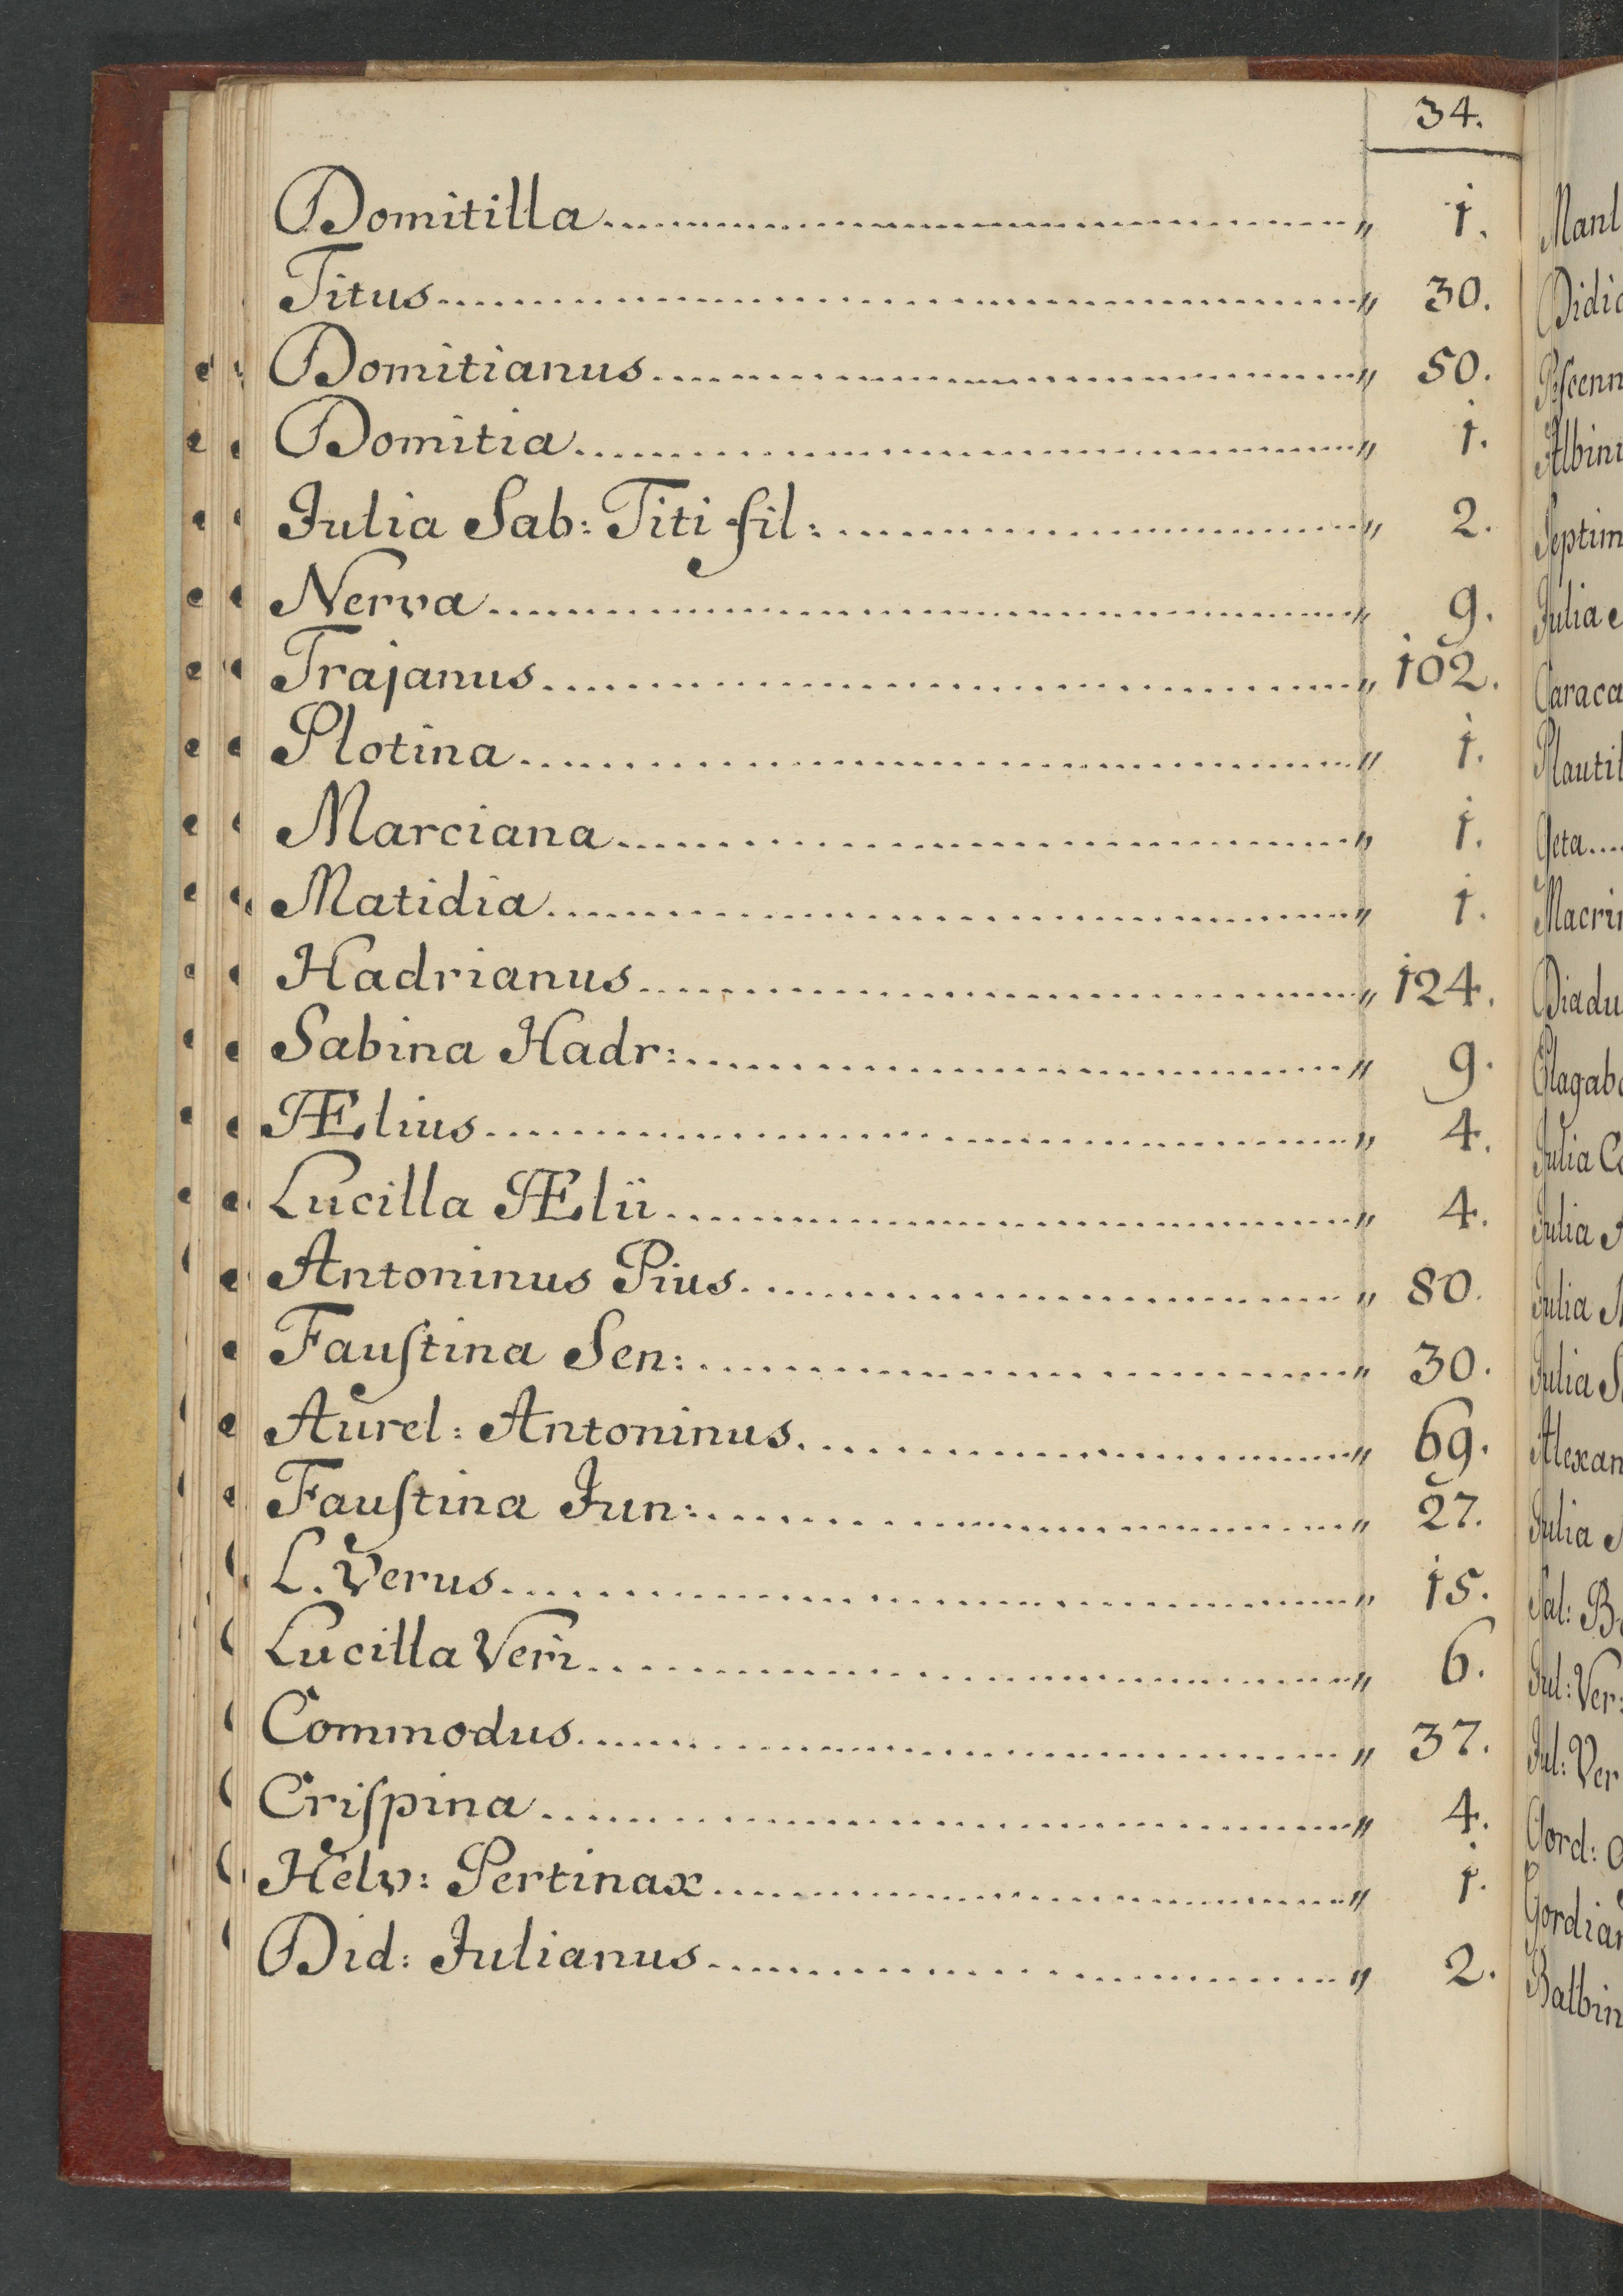 34.
Domitilla.......................................„ 1.
Titus.......................................„ 30.
Domitianus.......................................„ 50.
Domitia.......................................„ 1.
Julia Sab: Titi fil:.......................................„ 2.
Nerva.......................................„ 9.
Trajanus.......................................„ 102.
Plotina.......................................„ 1.
Marciana.......................................„ 1.
Matidia.......................................„ 1.
Hadrianus.......................................„ 124.
Sabina Hadr:.......................................„ 9.
Ælius.......................................„ 4.
Lucilla Ælii.......................................„ 4.
Antoninus Pius.......................................„ 80.
Fauſtina Sen:.......................................„ 30.
Aurel: Antoninus.......................................„ 69.
Fauſtina Jun:.......................................„ 27.
L. Verus.......................................„ 15.
Lucilla Veri.......................................„ 6.
Commodus.......................................„ 37.
Criſpina.......................................„ 4.
Helv: Pertinax.......................................„ 1.
Did: Julianus.......................................„ 2.
Manl
Didi
Peſcenn
Albin
Septim
Julia
Caraca
Plautil
Geta....
Macri
Diadu
Elagab
Julia C
Julia
Julia
Julia S
Alexan
Julia
Sal: B
Jul: Ver:
Jul: Ver
Gord:
Gordia
Balbin